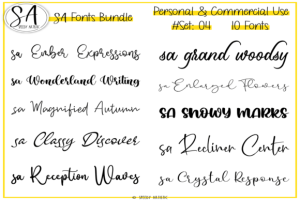 SA
SA Fonts Bundle
Personal & Commercial Use
#Set: 04 10 Fonts
sa Ember Expressions
sa Wonderland Writing
sa Magnified Autumn
sa Classy Discover
sa Reception Waves
sa grand woodsy
sa Enlarged Flowers
sa snowy marks
sa Recliner Center
sa Crystal Response